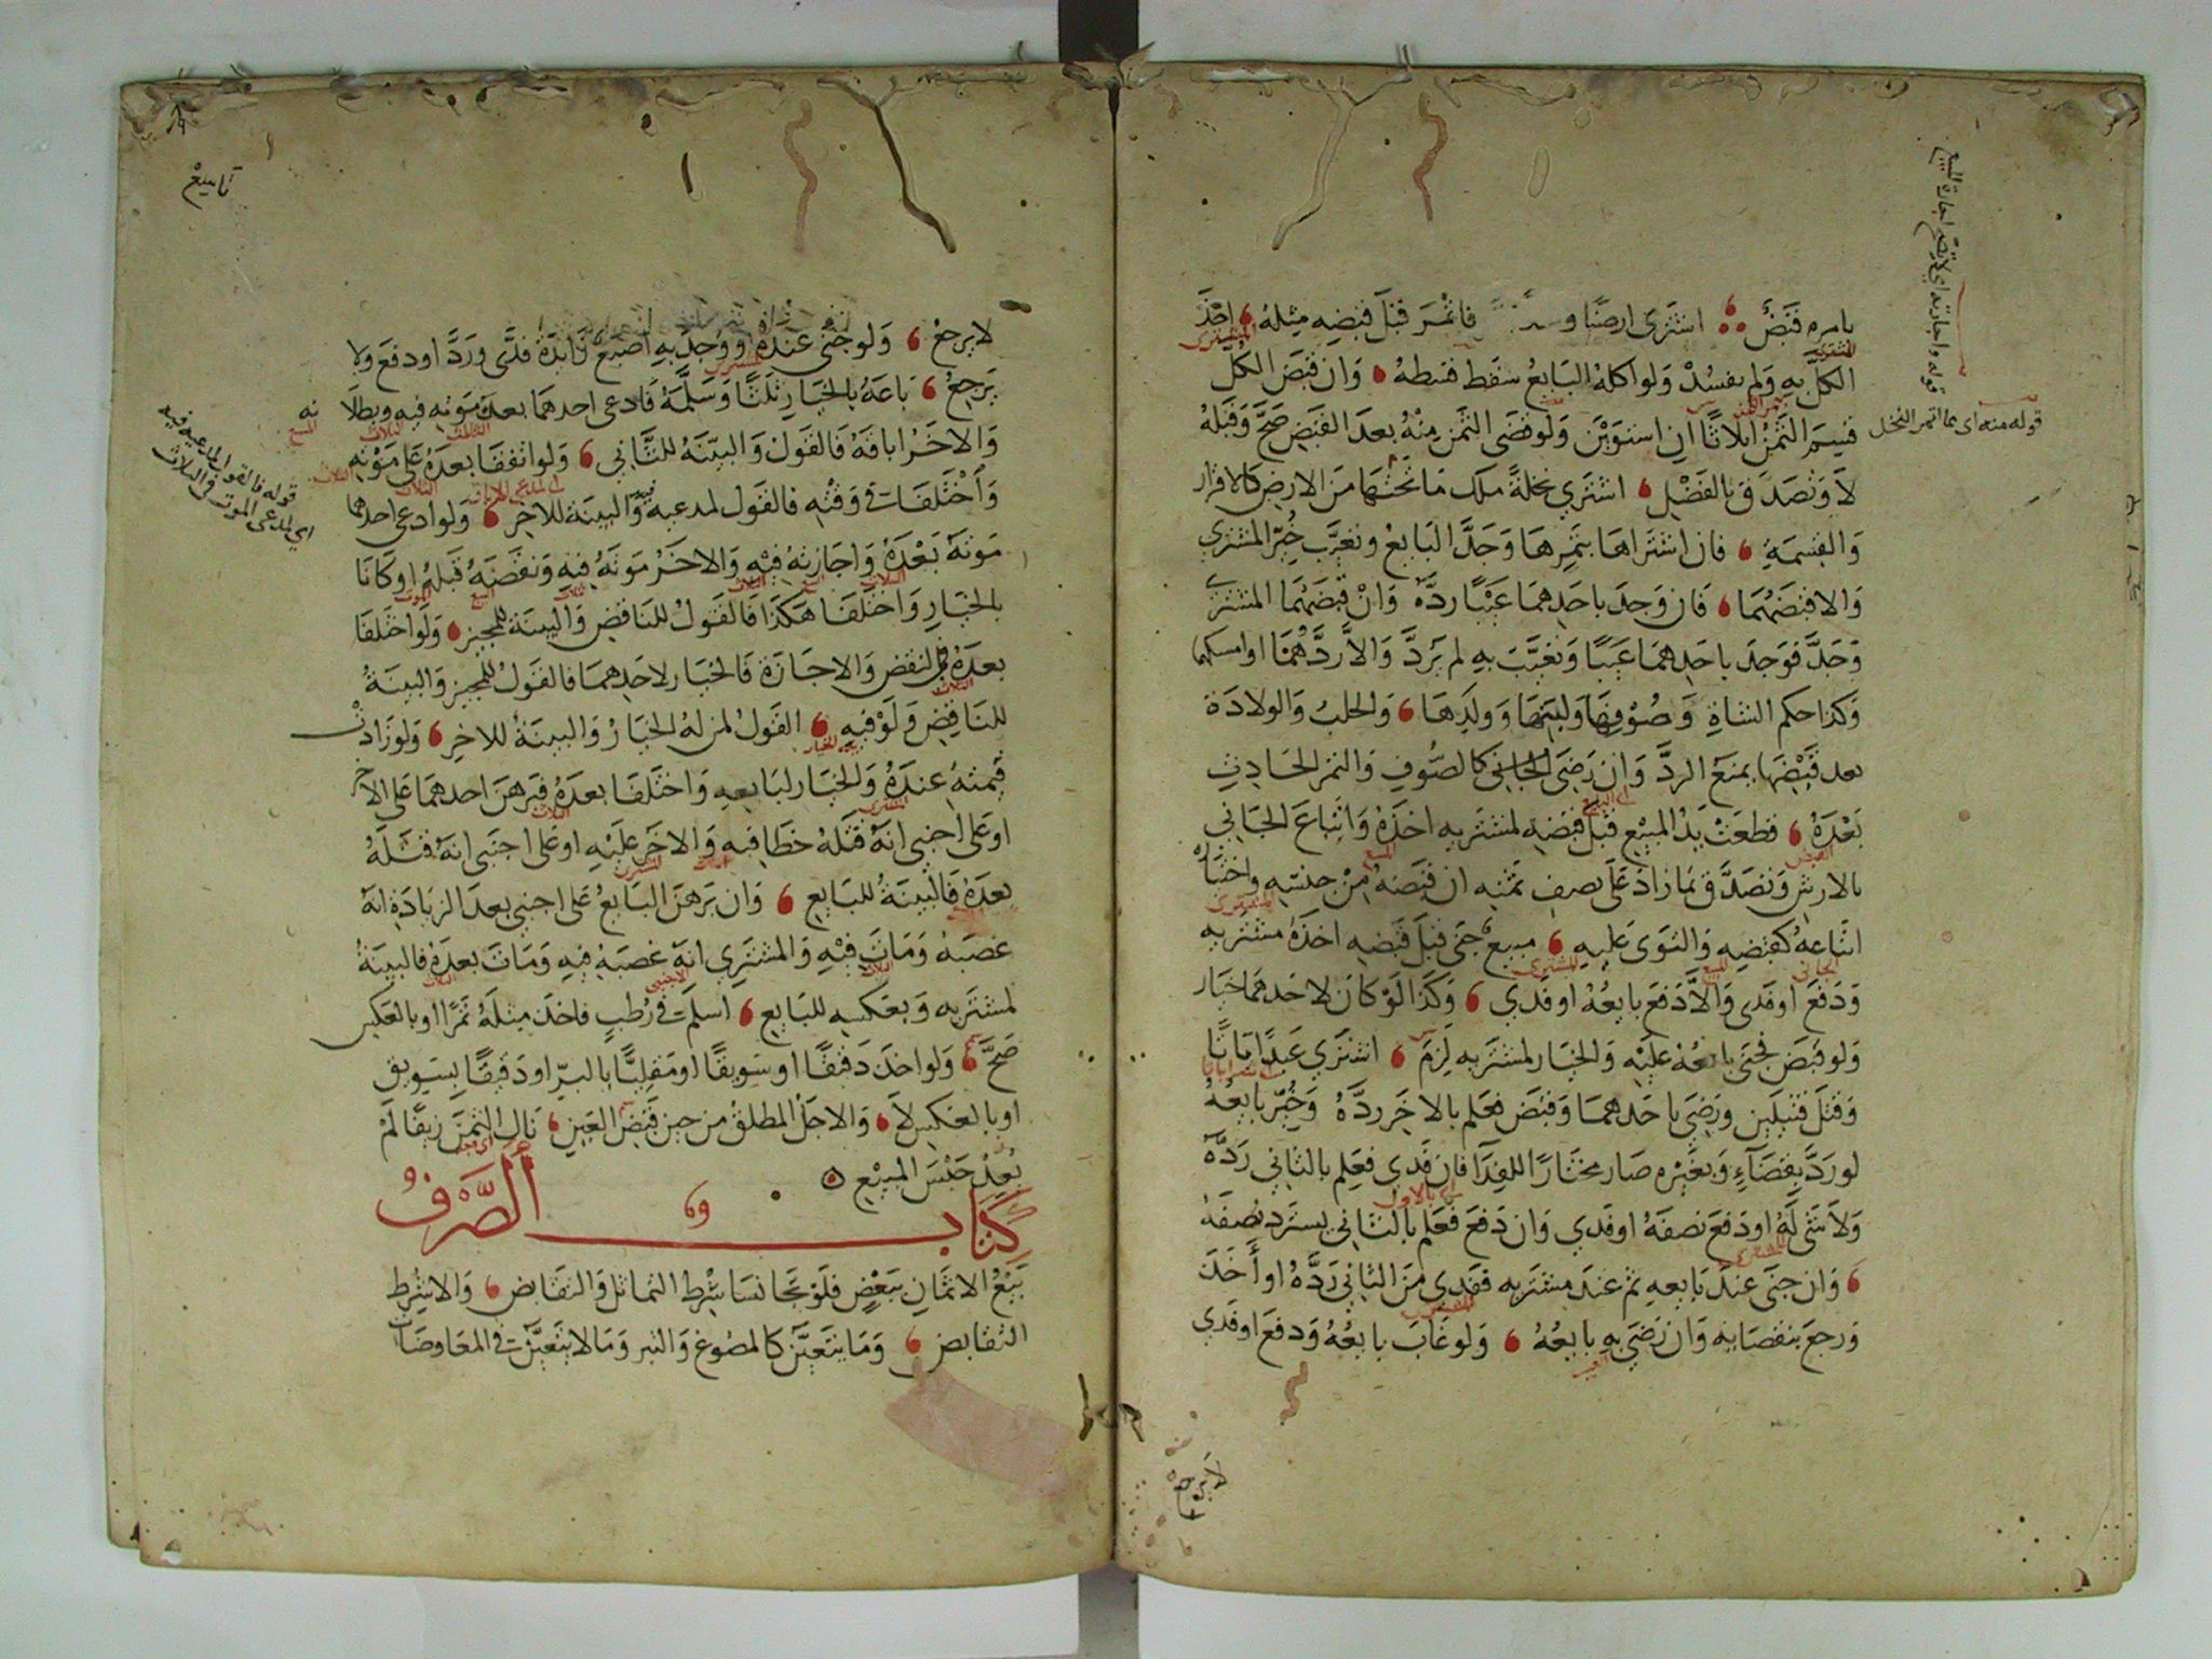 بامره قبض اشترى ارضا فاثمر قبل قبضه مثله اخذ
الكل به ولم يفسد ولو اكله البايع سقط قسطه وان قبض الكل
قسم الثمن اثلاثا ان استوين ولو قضى الثمن منه بعد القبض صح وقبله
لا وتصدق بالفضل اشترى نخلة ملك ما تحتها من الارض كالاقرار
والقسمة فان اشتراها بثمرها وجد البايع وتعيب خير المشتري
والا قبضهما فان وجد باحدهما عيبا رده وان قبضهما المشتري
وجد فوجد باحدهما عيبا وتعيب به لم يرد والا ردهما او امسكهما
وكذا حكم الشاة وصوفها ولبنها وولدها والحلب والولادة
بعد قبضها يمنع الرد وان رضي الجاني كالصوف والثمر الحادث
بعده قطعت يد المبيع قبل قبضه لمشتريه اخذه واتباع الجاني
بالارش وتصدق بما زاد على نصف ثمنه ان قبضه من جنسه واختياره
اتباعه كقبضه والتوى عليه مبيع جنى قبل قبضه اخذه مشتريه
ودفع او فدى والا دفع بايعه او فدي وكذا لو كان لاحدهما خيار
ولو قبض فجنى بايعه عليه والخيار لمشتريه لزم اشتري عبدا باتا
وقتل قتيلين ورضي باحدهما وقبض فعلم بالاخر رده وخير بايعه
لو رد بقضاء وبغيره صار مختارا للفدا فان فدي فعلم بالثاني رده
ولا شى له او دفع نصفه او فدي وان دفع فعلم بالثاني يسترد نصفه
وان جنى عند بايعه ثم عند مشتريه ففدي من الثاني رده او أخذ
ورجع بنقصانه وان رضي به بايعه ولو غاب بايعه ودفع او فدي
قوله منه اى مما اثمر النخل
لا يرجع
تابيع
لا يرجع ولو جنى عنده او وجد به اصبع زايدة فدى ورد او دفع ولا
يرجع باعه بالخيار ثلثا وسلمه فادعى احدهما بعد موته فيه وبطلانه
والاخر اباقه فالقول والبينة للثاني ولو اتفقا بعده على موته
واختلفا في وقته فالقول لمدعيه فيه والبينة للاخر ولو ادعى احدهما
موته بعده واجازته فيه والاخر موته فيه ونقضه قبله او كانا
بالخيار واختلفا هكذا فالقول للناقض والبينة للمجيز ولو اختلفا
بعده في النقض والاجازة فالخيار لاحدهما فالقول للمجيز والبينة
للناقض ولو فيه القول لمن له الخيار والبينة للاخر ولو زادت
قيمته عنده والخيار لبايعه واختلفا بعده فبرهن احدهما على الاخر
او على اجنبي انه قتله خطا فيه والاخر عليه او على اجنبي انه قتله
بعده فالبينة للبايع وان برهن البايع على اجنبي بعد الزيادة انه
غصبه ومات فيه والمشتري انه غصبه فيه ومات بعده فالبينة
لمشتريه وبعكسه للبايع اسلم في رطب فاخذ مثله تمرا او بالعكس
صح ولو اخذ دقيقا او سويقا او مقليا بالبر او دقيقا بسويق
او بالعكس لا والاجل المطلق من حين قبض العين نال الثمن زيفا لم
يعد حبس المبيع
كتاب الصرف
بيع الاثمان ببعض فلو تجانسا شرط التماثل والتقابض والا شرط
التقابض وما يتعين كالمصوغ والتبر وما لا يتعين في المعاوضات
قوله فالقول لمدعيه فيه
اي لمدعى الموت في الثلاث